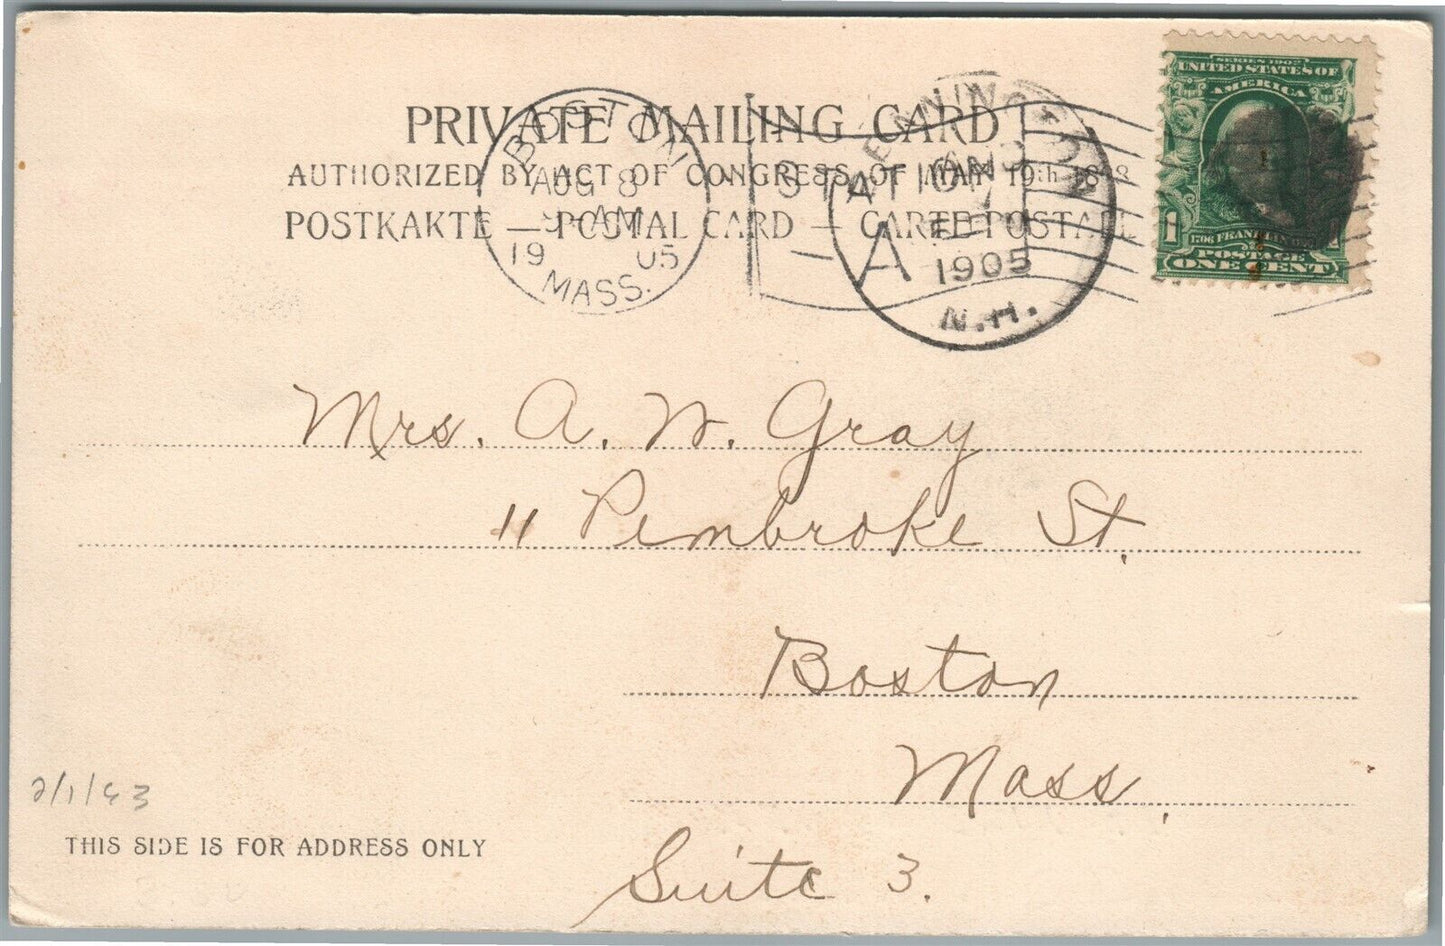 PRIVATE MAILING CARD
AUTHORIZED BY ACT OF CONGRESS OF MAY 19th 1898
POSTKAKTE — POSTAL CARD — CARTE POSTALE
BOSTON
AUG 8
AM
1905
MASS.
STATION
A
1905
N.H.
SERIES 1902
UNITED STATES OF
AMERICA
1706 FRANKLIN
POSTAGE
ONE CENT
Mrs. A. W. Gray
11 Pembroke St.
Boston
Mass.
Suite 3.
2/1/43
THIS SIDE IS FOR ADDRESS ONLY